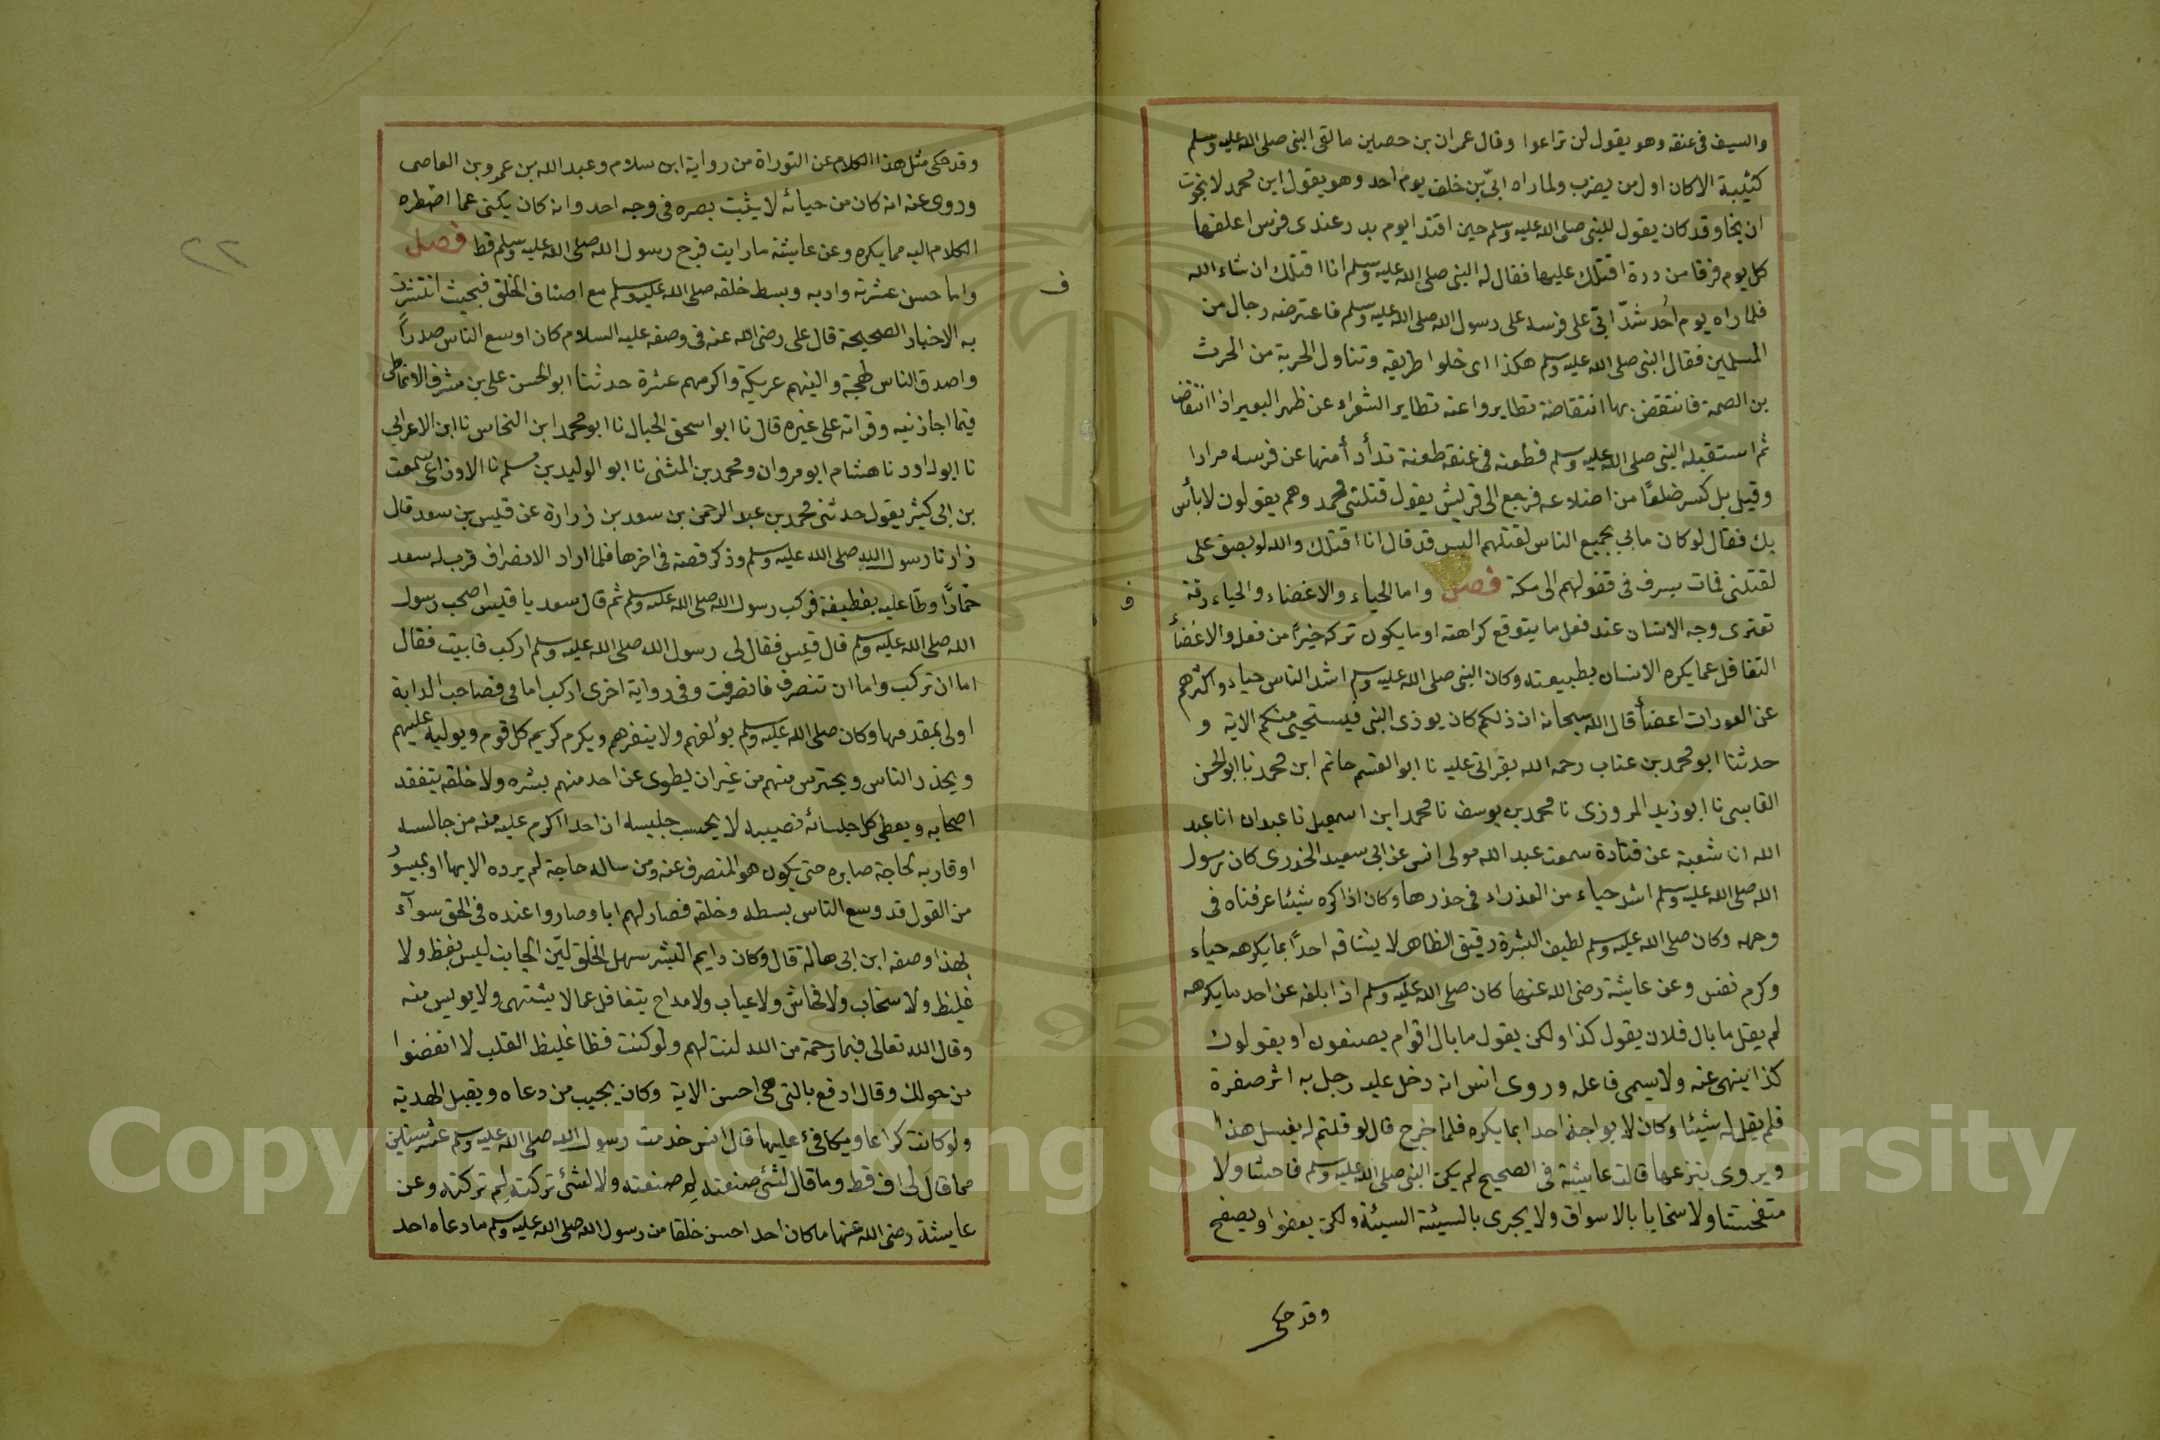 والسيف في عنقه وهو يقول لن تراعوا وقال عمران بن حصين ما لقى النبى صلى الله عليه وسلم
كتيبة الا كان اول من يضرب ولما راه ابىّ بن خلف يوم احد وهو يقول اين محمد لا نجوت
ان نجا وقد كان يقول للنبى صلى الله عليه وسلم حين افتدا يوم بدر عندى فرس اعلفها
كل يوم فرقا من درة اقتلك عليها فقال له النبى صلى الله عليه وسلم انا اقتلك ان شاء الله
فلما راه يوم اُحُد شدّ ابىّ على فرسه على رسول الله صلى الله عليه وسلم فاعترضه رجال من
المسلمين فقال النبى صلى الله عليه وسلم هكذا اى خلوا طريقه وتناول الحربة من الحرث
بن الصمة فانتقض بها انتقاضة تطايروا عنه تطاير الشعراء عن ظهر البعير اذا انتقض
ثم استقبله النبى صلى الله عليه وسلم فطعنه فى عنقه طعنة تدأدأ منها عن فرسه مرارا
وقيل بل كسر ضلعًا من اضلاعه فرجع الى قريش يقول قتلنى محمد وهم يقولون لا بأس
بك فقال لو كان ما بى بجميع الناس لقتلهم اليس قد قال انا اقتلك والله لو بصق على
لقتلنى فمات بسرف فى قفولهم الى مكة فصل واما الحياء والاغضاء والحياء رقة
تعترى وجه الانسان عند فعل ما يتوقع كراهته او ما يكون تركه خيرًا من فعله والاغضأ
التغافل عما يكره الانسان بطبيعته وكان النبى صلى الله عليه وسلم اشد الناس حياء واكثرهم
عن العورات اغضأ قال الله سبحانه ان ذلكم كان يوذى النبى فيستحيى منكم الاية و
حدثنا ابو محمد بن عتاب رحمه الله بقراتى عليه نا ابو القسم حاتم ابن محمد نا ابو الحسن
القابسى نا ابو زيد المروزى نا محمد بن يوسف نا محمد ابن اسمعيل نا عبدان انا عبد
الله انا شعبة عن قتادة سمعت عبد الله مولى انس عن ابى سعيد الخدرى كان رسول
الله صلى الله عليه وسلم اشد حياء من العذراء فى خدرها وكان اذا كره شيئا عرفناه فى
وجهه وكان صلى الله عليه وسلم لطيف البشرة رقيق الظاهر لا يشافه احدًا بما يكرهه حياء
وكرم نفس وعن عايشة رضى الله عنها كان صلى الله عليه وسلم اذا بلغه عن احد ما يكرهه
لم يقل ما بال فلان يقول كذا ولكن يقول ما بال اقوام يصنعون او يقولون
كذا ينهى عنه ولا يسمى فاعله وروى انس انه دخل عليه رجل به اثر صفرة
فلم يقل له شيئا وكان لا يواجه احدا بما يكره فلما خرج قال لو قلتم له يغسل هذا
ويروى ينزعها قالت عايشة فى الصحيح لم يكن النبى صلى الله عليه وسلم فاحشا ولا
متفحشا ولا سخابا بالاسواق ولا يجزى بالسيئة السيئة ولكن يعفوا ويصفح
وقد حكى
ف
وقد حكى مثل هذا الكلام عن التوراة من رواية ابن سلام وعبد الله بن عمرو بن العاصى
وروى عنه انه كان من حيائه لا يثبت بصره فى وجه احد وانه كان يكنى عما اضطره
الكلام اليه مما يكره وعن عايشة ما رايت فرج رسول الله صلى الله عليه وسلم قط فصل
واما حسن عشرته وادبه وبسط خلقه صلى الله عليه وسلم مع اصناف الخلق فبحيث انتشرت
به الاخبار الصحيحة قال على رضى الله عنه فى وصفه عليه السلام كان اوسع الناس صدراً
واصدق الناس لهجة والينهم عريكة واكرمهم عشرة حدثنا ابو الحسن على بن مشرف الانماطى
فيما اجازنيه وقراته على غيره قال نا ابو اسحق الحبال نا ابو محمد ابن النحاس نا ابن الاعرابى
نا ابو داود نا هشام ابو مروان ومحمد بن المثنى نا ابو الوليد بن مسلم نا الاوزاعى سمعت
بن ابى كثير يقول حدثنى محمد بن عبد الرحمن بن سعد بن زرارة عن قيس بن سعد قال
زارنا رسول الله صلى الله عليه وسلم وذكر قصة فى اخرها فلما اراد الانصراف قرب له سعد
حمارًا وطّا عليه بقطيفة فركب رسول الله صلى الله عليه وسلم ثم قال سعد يا قيس اصحب رسول
الله صلى الله عليه وسلم قال قيس فقال لى رسول الله صلى الله عليه وسلم اركب فابيت فقال
اما ان تركب واما ان تنصرف فانصرفت وفى رواية اخرى اركب امامى فصاحب الدابة
اولى بمقدمها وكان صلى الله عليه وسلم يؤلفهم ولا ينفرهم ويكرم كريم كل قوم ويوليه عليهم
ويحذر الناس ويحترس منهم من غير ان يطوى عن احد منهم بشره ولا خلقه يتفقد
اصحابه ويعطى كل جلسائه نصيبه لا يحسب جليسه ان احدا اكرم عليه منه من جالسه
او قاربه لحاجة صابره حتى يكون هو المنصرف عنه ومن ساله حاجة لم يرده الا بها او بميسور
من القول قد وسع الناس بسطه وخلقه فصار لهم ابا وصاروا عنده فى الحق سوآء
بهذا وصفه ابن ابى هالة قال وكان دايم البشر سهل الخلق ليّن الجانب ليس بفظ ولا
غليظ ولا سخاب ولا فحاش ولا عياب ولا مداح يتغافل عما لا يشتهى ولا يويس منه
وقال الله تعالى فبما رحمة من الله لنت لهم ولو كنت فظا غليظ القلب لا انفضوا
من حولك وقال ادفع بالتى هى احسن الاية وكان يجيب من دعاه ويقبل الهدية
ولو كانت كراعا ويكافئ عليها قال انس خدمت رسول الله صلى الله عليه وسلم عشر سنين
فما قال لى اف قط وما قال لشئ صنعته لم صنعته ولا لشئ تركته لم تركته وعن
عايشة رضى الله عنها ما كان احد احسن خلقا من رسول الله صلى الله عليه وسلم ما دعاه احد
ف
٢٢
Copyright © King Saud University
1957